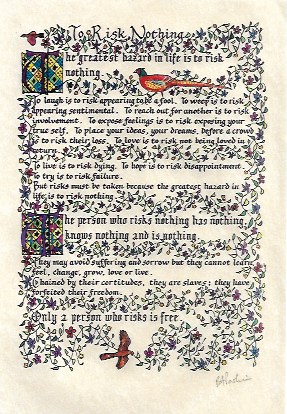 To Risk Nothing
The greatest hazard in life is to risk
nothing.
To laugh is to risk appearing to be a fool. To weep is to risk
appearing sentimental. To reach out for another is to risk
involvement. To expose feelings is to risk exposing your
true self. To place your ideas, your dreams, before a crowd
is to risk their loss. To love is to risk not being loved in
return.
To live is to risk dying. To hope is to risk disappointment.
To try is to risk failure.
But risks must be taken because the greatest hazard in
life, is to risk nothing.
The person who risks nothing has nothing,
knows nothing and is nothing.
They may avoid suffering and sorrow but they cannot learn,
feel, change, grow, love or live.
Chained by their certitudes, they are slaves; they have
forfeited their freedom.
Only a person who risks is free.